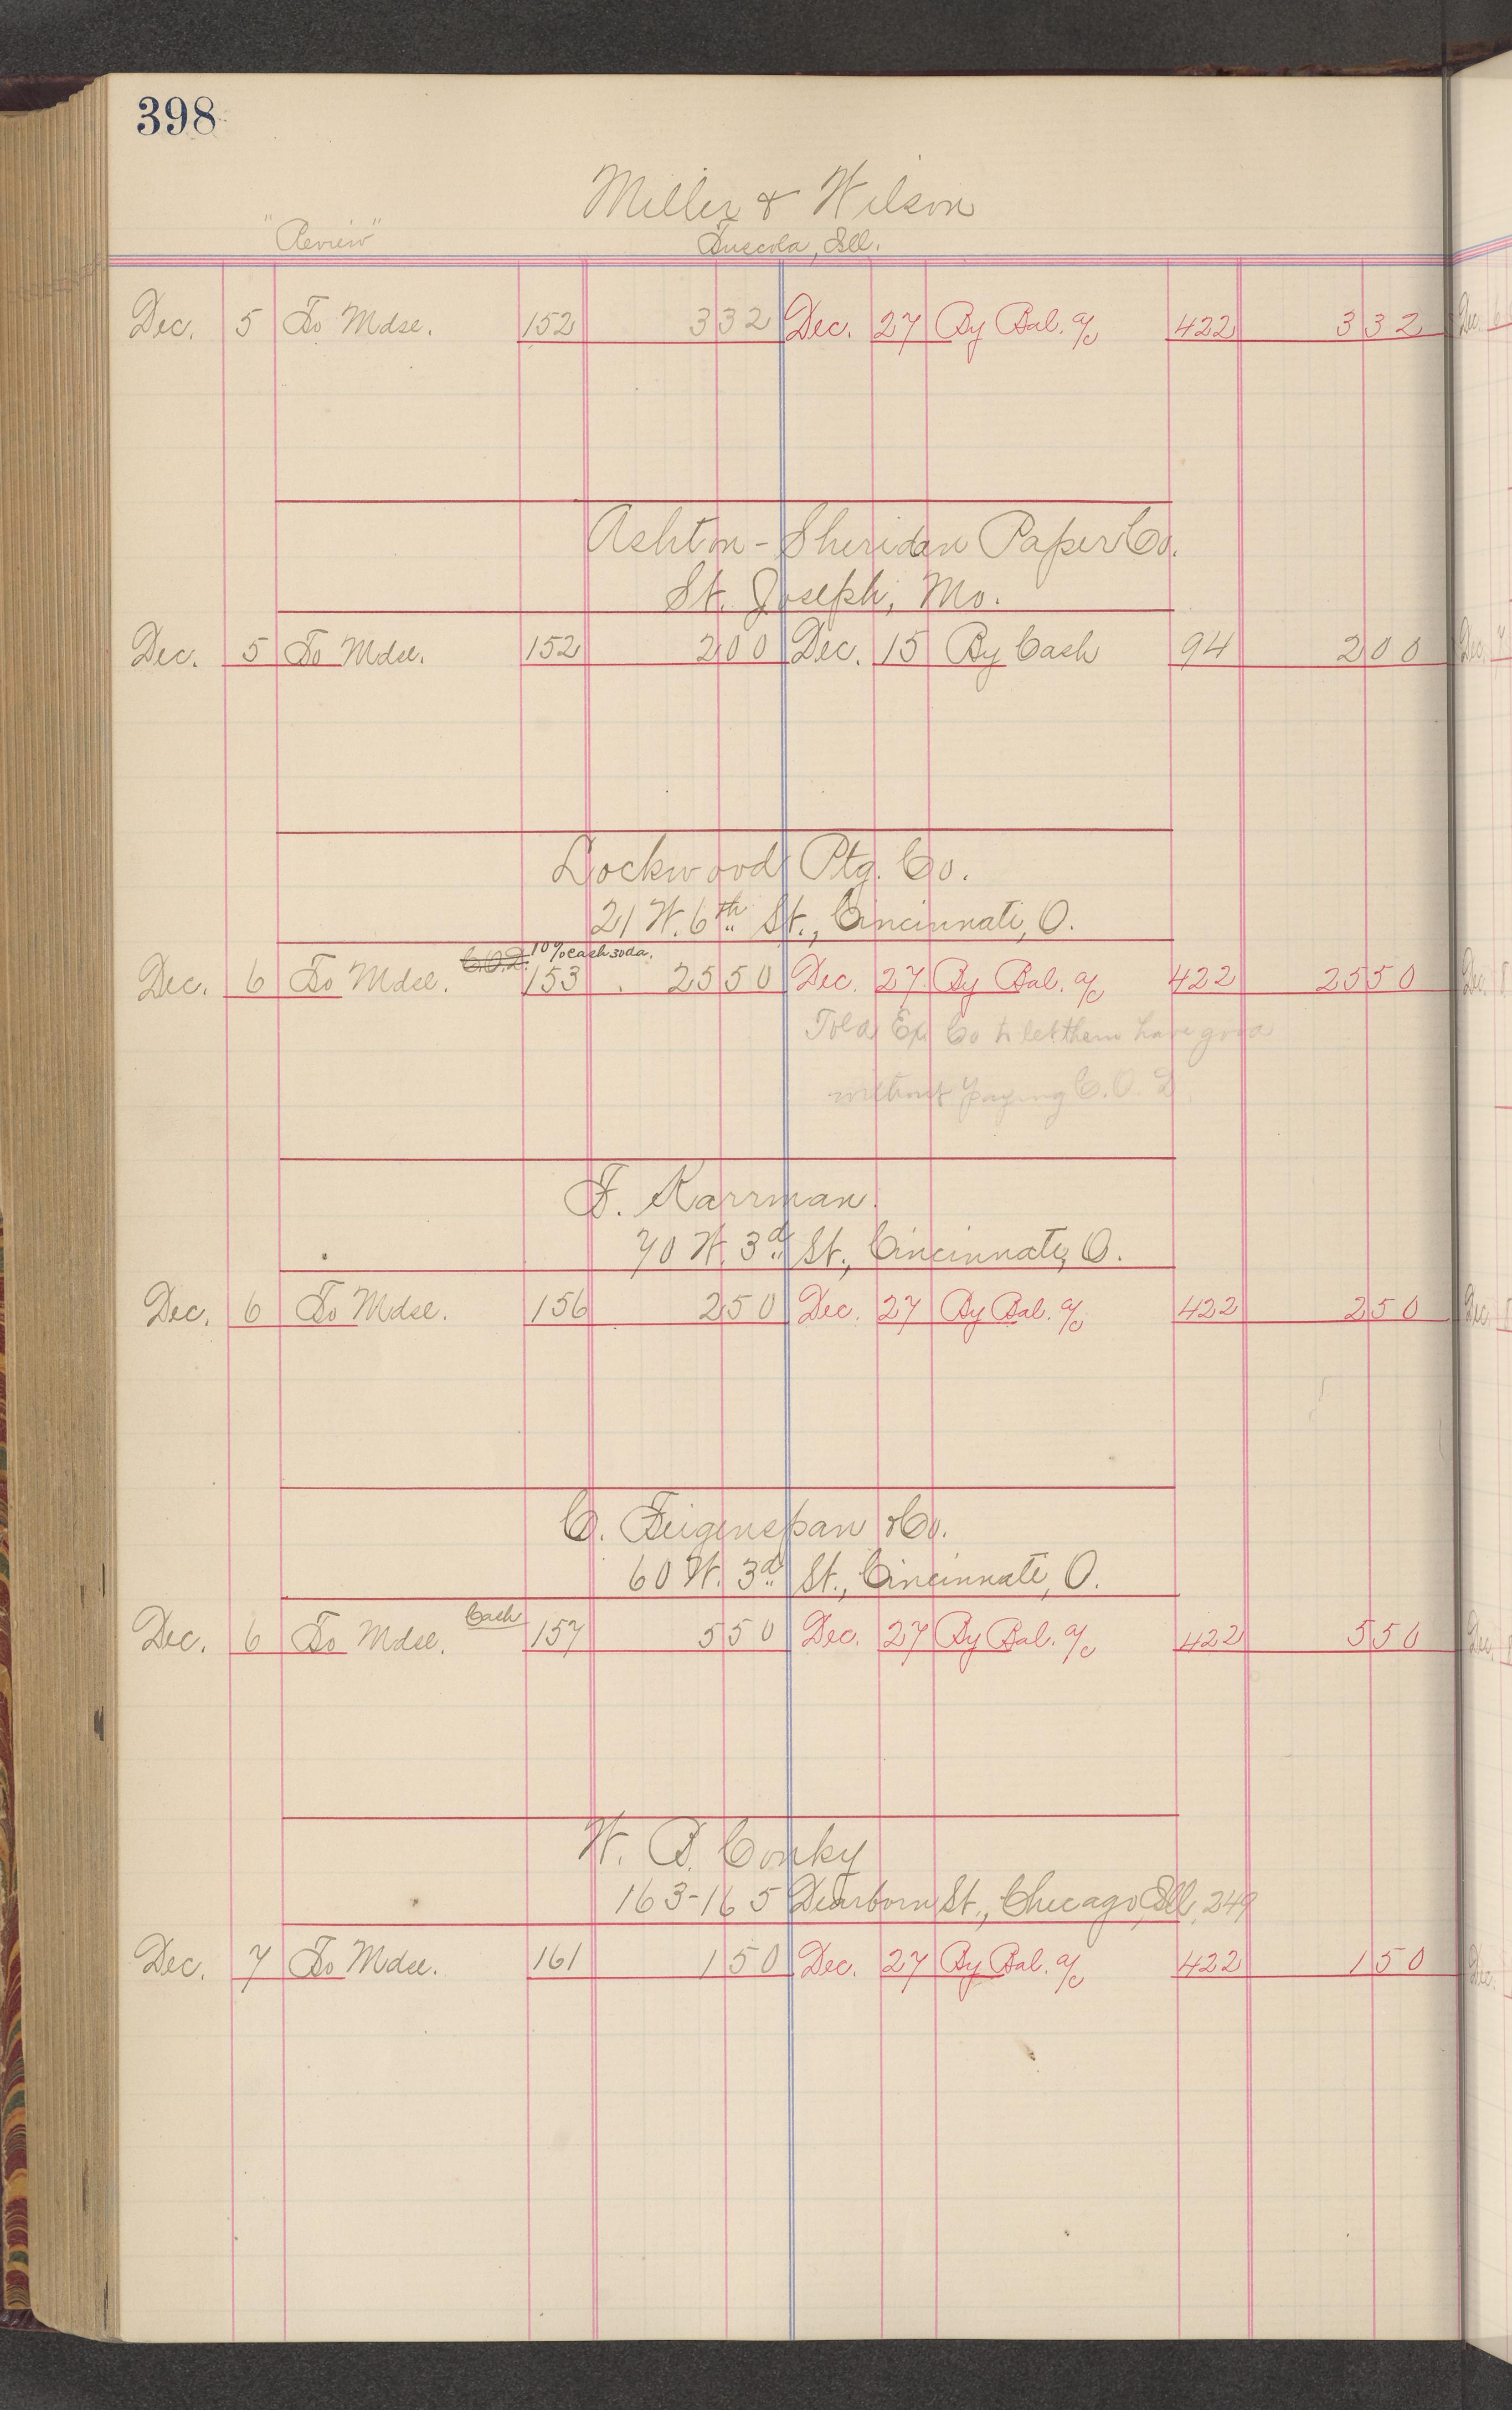 398
Miller & Wilson
"Review" Tuscola, Ill.
Dec. 5 To Mdse. 152 3 32 Dec. 27 By Bal. a/c 422 3 32
Ashton-Sheridan Paper Co.
St. Joseph, Mo.
Dec. 5 To Mdse. 152 2 00 Dec. 15 By Cash 94 2 00
Lockwood Ptg. Co.
21 W. 6th St., Cincinnati, O.
C.O.D. 10% cash 30 da.
Dec. 6 To Mdse. 153 25 50 Dec. 27 By Bal. a/c 422 25 50
Told Ex Co to let them have good
without paying C.O.D.
F. Karrman.
70 W. 3d St., Cincinnati, O.
Dec. 6 To Mdse. 156 2 50 Dec. 27 By Bal. a/c 422 2 50
C. Feigenspan & Co.
60 W. 3d St., Cincinnati, O.
Dec. 6 To Mdse. Cash 157 5 50 Dec. 27 By Bal. a/c 422 5 50
W. B. Conky
163-165 Dearborn St., Chicago, Ill. 249
Dec. 7 To Mdse. 161 1 50 Dec. 27 By Bal. a/c 422 1 50